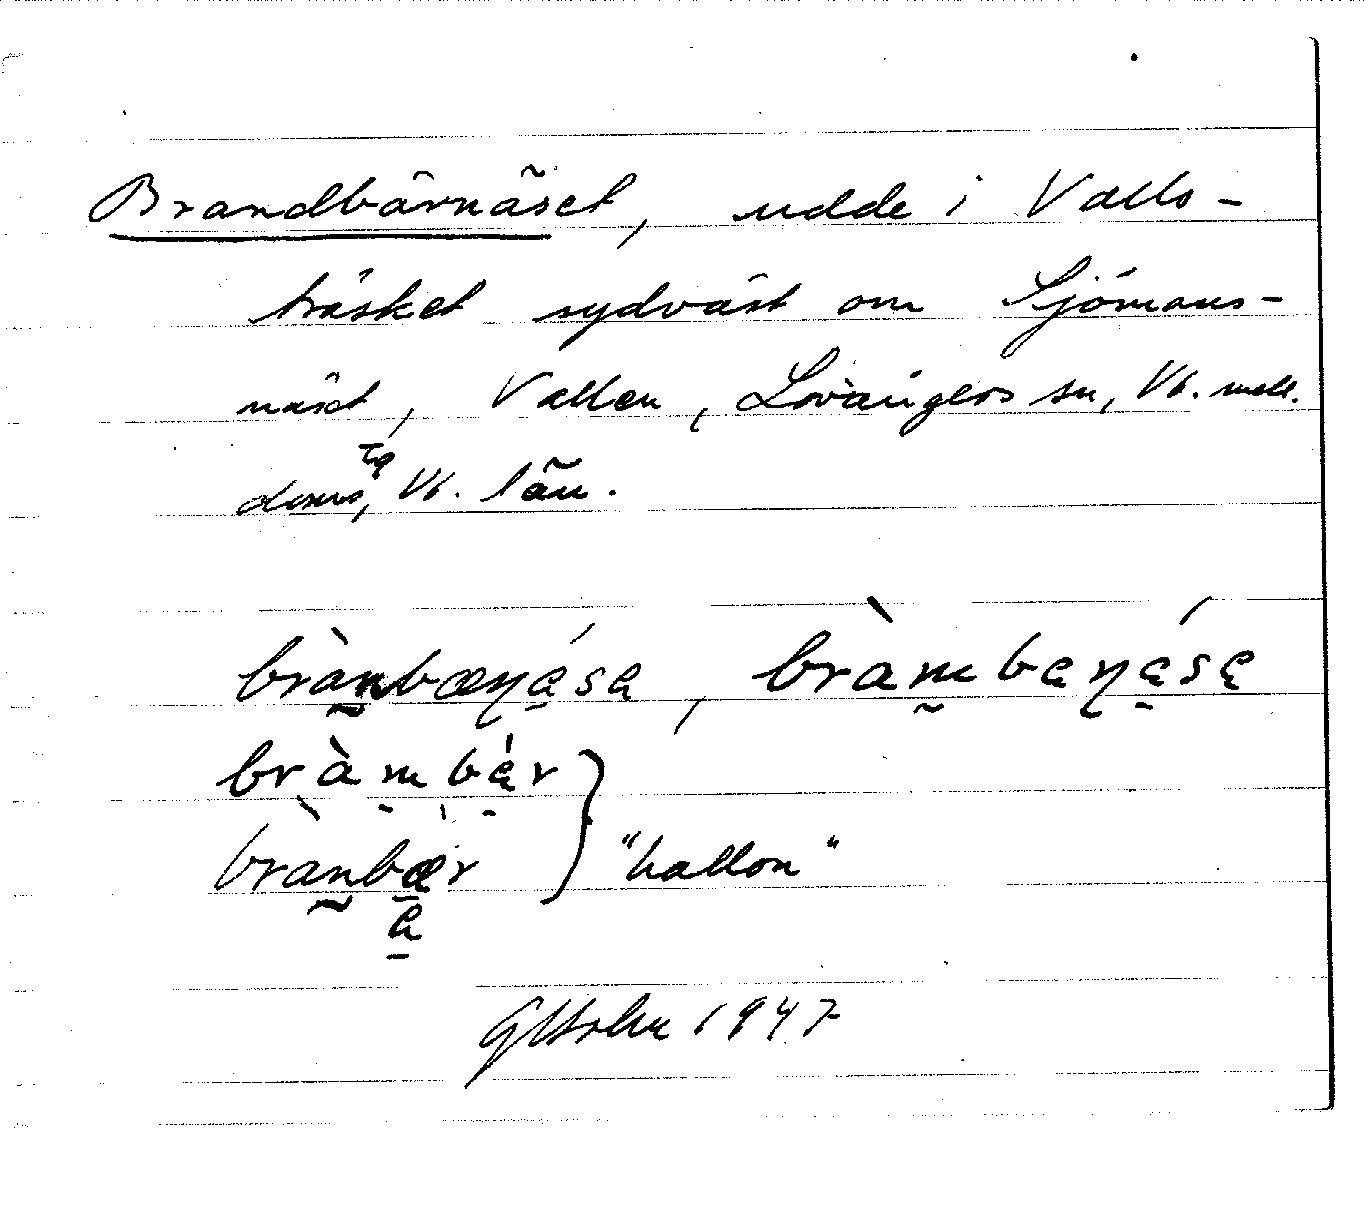 Brandbärnäset, udde i Valls-
träsket sydväst om Sjömans-
näset, Vallen, Lövångers sn, Vb. mell.
doms tg, Vb. län.
brànbæŋǝ́sǝ, bràmbǝŋǝ́sǝ
bràmbǝ̀r
brànbæ̀r } "hallon"
ǝ
1947